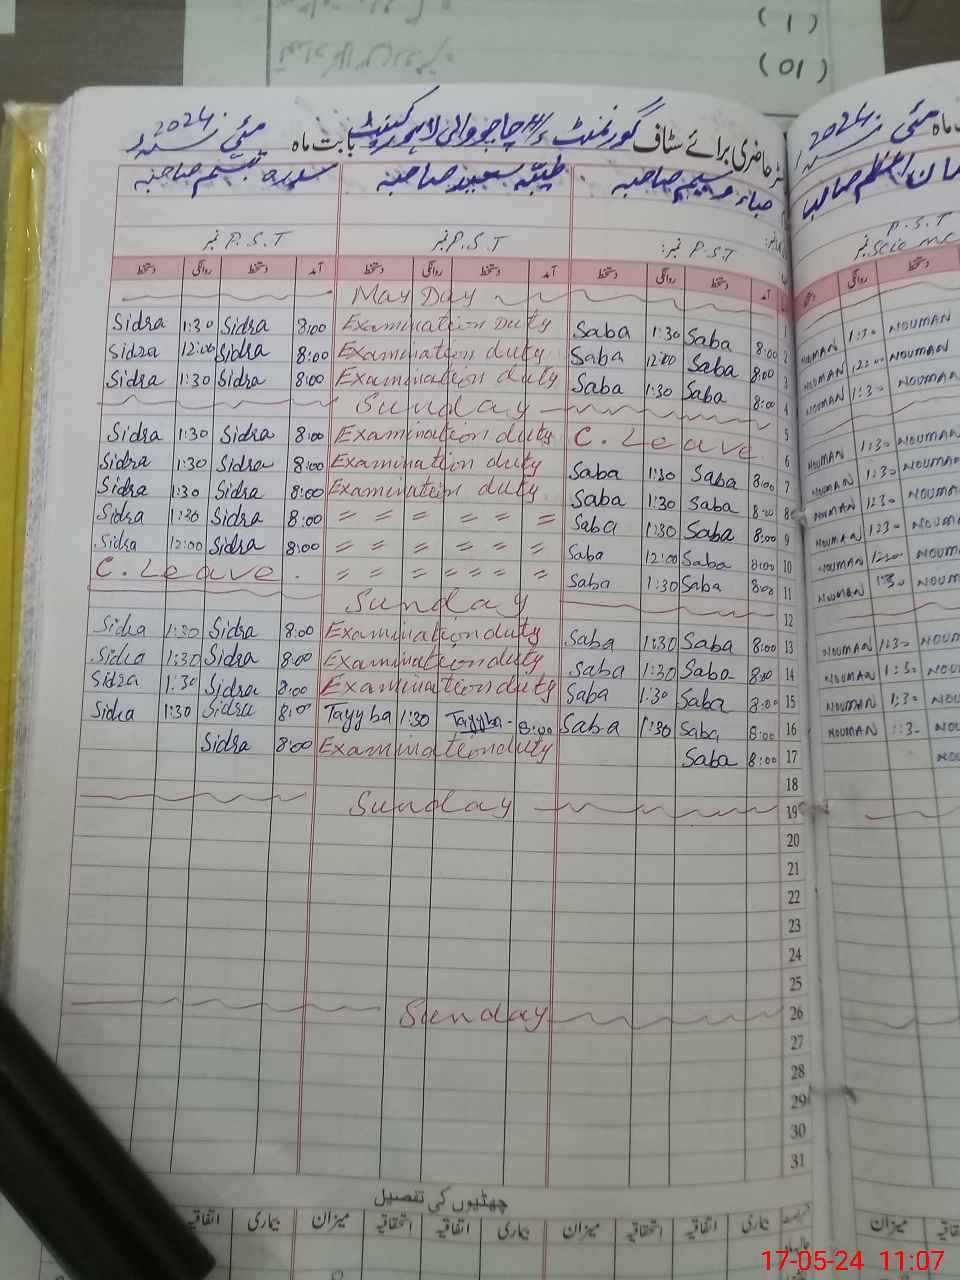 ( 1 )
( 01 )
حاضری برائے سٹاف گورنمنٹ بابت ماہ مئی 2024
ماہ مئی 2024
صباء وسیم صاحبہ طیبہ سعید صاحبہ سدرہ تبسم صاحبہ
P.S.T نمبر P.S.T نمبر P.S.T نمبر
P.S.T
آمد دستخط روانگی دستخط آمد دستخط روانگی دستخط آمد دستخط روانگی دستخط
May Day
Sidra 1:30 Sidra 8:00 Examination Duty Saba 1:30 Saba 8:00 2 NOUMAN 1:30 NOUMAN
Sidra 12:00 Sidra 8:00 Examination duty Saba 12:00 Saba 8:00 3 NOUMAN 12:00 NOUMAN
Sidra 1:30 Sidra 8:00 Examination duty Saba 1:30 Saba 8:00 4 NOUMAN 1:30 NOUMAN
Sunday 5
Sidra 1:30 Sidra 8:00 Examination duty C. Leave 6 NOUMAN 1:30 NOUMAN
Sidra 1:30 Sidra 8:00 Examination duty Saba 1:30 Saba 8:00 7 NOUMAN 1:30 NOUMAN
Sidra 1:30 Sidra 8:00 Examination duty Saba 1:30 Saba 8:00 8 NOUMAN 1:30 NOUMAN
Sidra 1:30 Sidra 8:00 = = = = = = Saba 1:30 Saba 8:00 9 NOUMAN 1:30 NOUMAN
Sidra 12:00 Sidra 8:00 = = = = = = Saba 12:00 Saba 8:00 10 NOUMAN 12:00 NOUMAN
C. Leave = = = = = = Saba 1:30 Saba 8:00 11 NOUMAN 1:30 NOUM
Sunday 12
Sidra 1:30 Sidra 8:00 Examination duty Saba 1:30 Saba 8:00 13 NOUMAN 1:30 NOUM
Sidra 1:30 Sidra 8:00 Examination duty Saba 1:30 Saba 8:00 14 NOUMAN 1:30 NOUM
Sidra 1:30 Sidra 8:00 Examination duty Saba 1:30 Saba 8:00 15 NOUMAN 1:30 NOU
Sidra 1:30 Sidra 8:00 Tayyba 1:30 Tayyba 8:00 Saba 1:30 Saba 8:00 16 NOUMAN 1:30 NOU
Sidra 8:00 Examination duty Saba 8:00 17 NOU
18
Sunday 19
20
21
22
23
24
25
Sunday 26
27
28
29
30
31
چھٹیوں کی تفصیل
بیماری اتفاقیہ استحقاقیہ میزان بیماری اتفاقیہ استحقاقیہ میزان بیماری اتفاقیہ
میزان
17-05-24 11:07